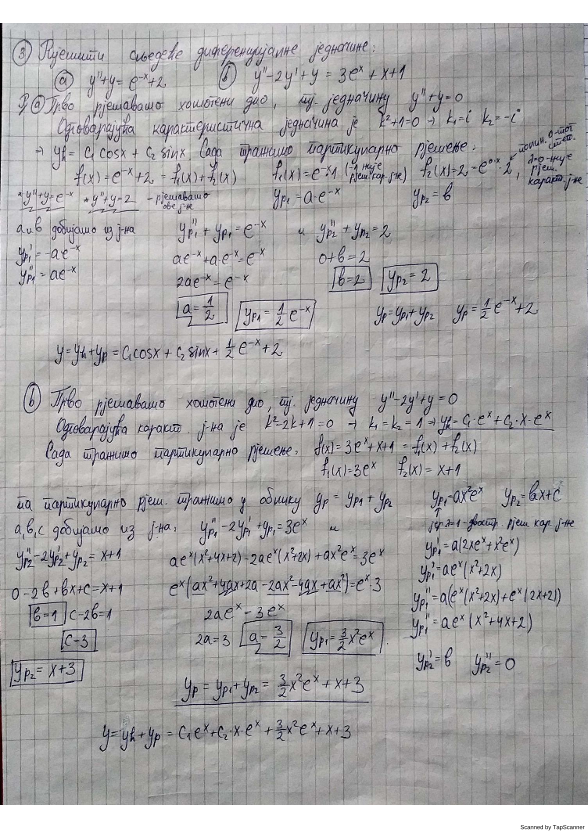 ③ Ријешити сљедеће диференцијалне једначине:
ⓐ y''+y=e^{-x}+2 ⓑ y''-2y'+y=3e^x+x+1
Р. ⓐ Прво рјешавамо хомогени дио, тј. једначину y''+y=0
Одговарајућа карактеристична једначина је k²+1=0 → k₁=i k₂=-i
→ y_h = C₁cosx + C₂ sinx. Сада тражимо партикуларно рјешење.
f(x)=e^{-x}+2=f₁(x)+f₂(x) f₁(x)=e^{-x}·1 (-1 није рјеш. кар. ј-не) f₂(x)=2=e^{0·x}·2, полин. 0-тог степ. 0-није рјеш. каракт. ј-не
* y''+y=e^{-x} * y''+y=2 - рјешавамо ове ј-не y_{p1}=a·e^{-x} y_{p2}=b
a, и b добијамо из ј-на y_{p1}''+y_{p1}=e^{-x} и y_{p2}''+y_{p2}=2
y_{p1}'=-ae^{-x} ae^{-x}+a·e^{-x}=e^{-x} 0+b=2
y_{p1}''=ae^{-x} 2ae^{-x}=e^{-x} b=2 y_{p2}=2
a=1/2 y_{p1}=1/2 e^{-x} y_p=y_{p1}+y_{p2} y_p=1/2 e^{-x}+2
y=y_h+y_p=C₁cosx+C₂sinx+1/2 e^{-x}+2
ⓑ Прво рјешавамо хомогени дио, тј. једначину y''-2y'+y=0
Одговарајућа каракт. ј-на је k²-2k+1=0 → k₁=k₂=1 → y_h=C₁·e^x+C₂·x·e^x
Сада тражимо партикуларно рјешење. f(x)=3e^x+x+1=f₁(x)+f₂(x)
f₁(x)=3e^x f₂(x)=x+1
па партикуларно рјеш. тражимо у облику y_p=y_{p1}+y_{p2} y_{p1}=ax²e^x y_{p2}=bx+c
a,b,c добијамо из ј-на, y_{p1}''-2y_{p1}'+y_{p1}=3e^x и јер је 1-двостр. рјеш. кар. ј-не
y_{p2}''-2y_{p2}'+y_{p2}=x+1 ae^x(x²+4x+2)-2ae^x(x²+2x)+ax²e^x=3e^x y_{p1}'=a(2xe^x+x²e^x)
0-2b+bx+c=x+1 e^x(ax²+4ax+2a-2ax²-4ax+ax²)=e^x·3 y_{p1}'=ae^x(x²+2x)
b=1 c-2b=1 2ae^x=3e^x y_{p1}''=a(e^x(x²+2x)+e^x(2x+2))
c=3 2a=3 a=3/2 y_{p1}=3/2 x²e^x y_{p1}''=ae^x(x²+4x+2)
y_{p2}=x+3 y_{p2}'=b y_{p2}''=0
y_p=y_{p1}+y_{p2}=3/2 x²e^x+x+3
y=y_h+y_p=C₁e^x+C₂·x·e^x+3/2 x²e^x+x+3
Scanned by TapScanner